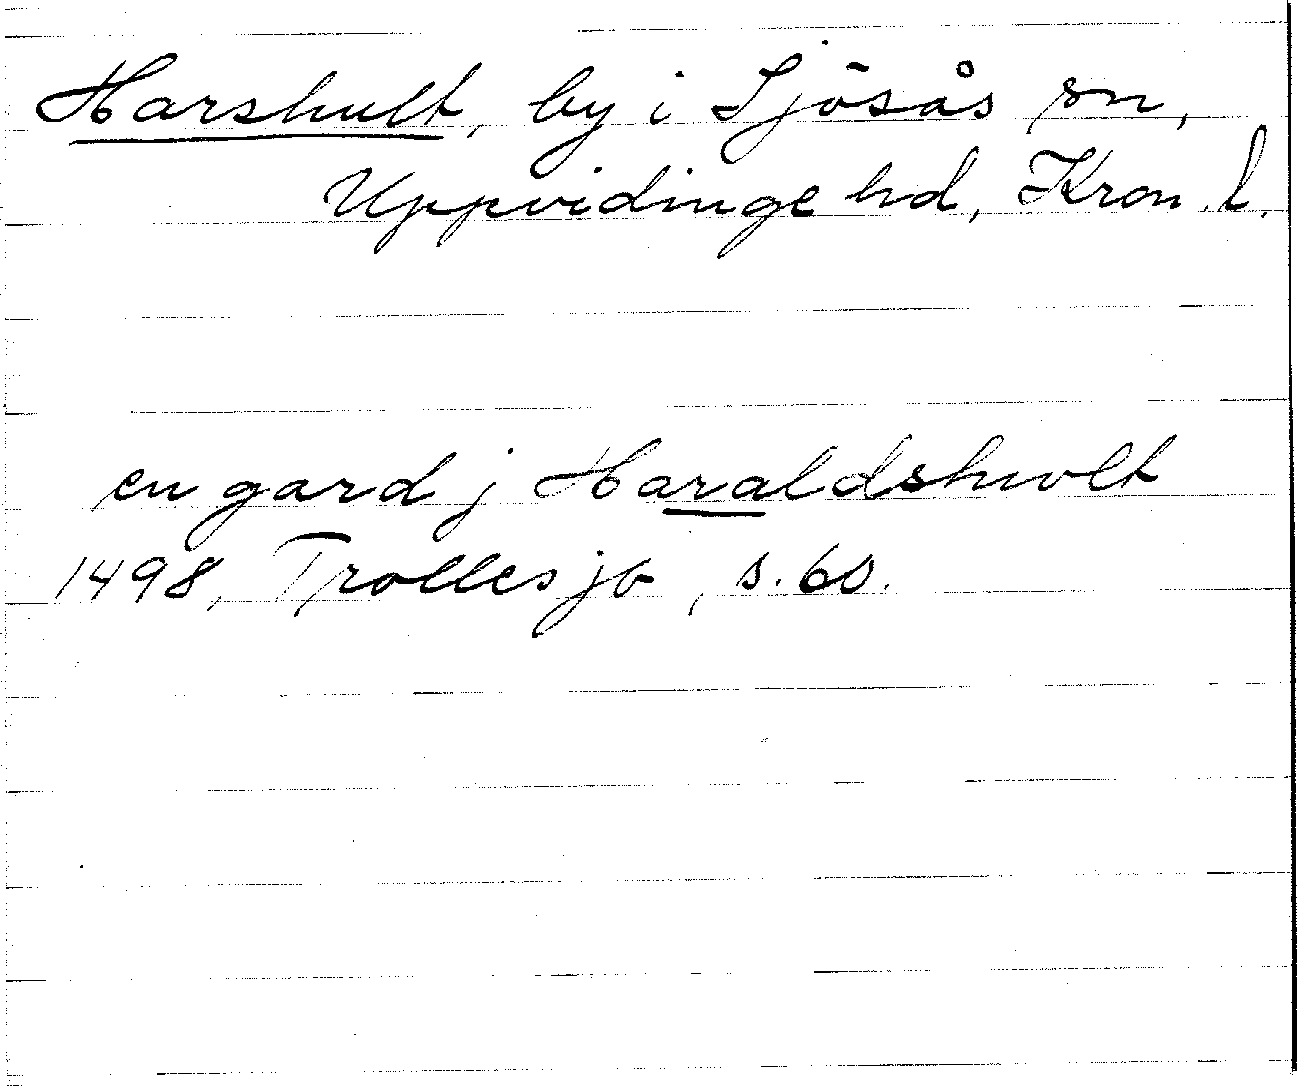 Harshult, by i Sjösås sn,
Uppvidinge hd, Kron. l.
en gard j Haraldshwlt
1498, Trolles jb, s. 60.